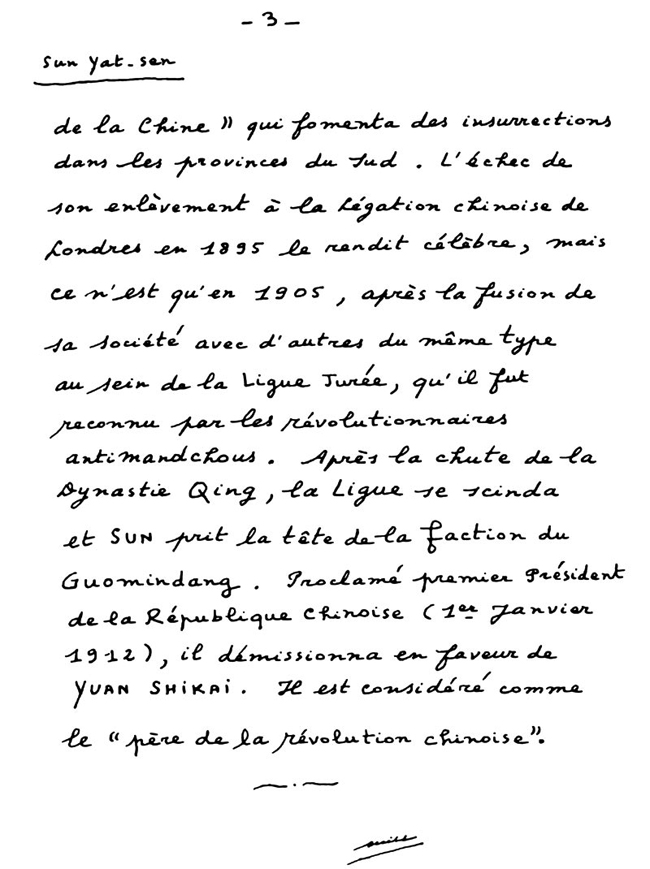 - 3 -
Sun Yat-sen
de la Chine" qui fomenta des insurrections
dans les provinces du Sud. L'échec de
son enlèvement à la Légation chinoise de
Londres en 1895 le rendit célèbre, mais
ce n'est qu'en 1905, après la fusion de
sa société avec d'autres du même type
au sein de la Ligue Jurée, qu'il fut
reconnu par les révolutionnaires
antimandchous. Après la chute de la
Dynastie Qing, la Ligue se scinda
et SUN prit la tête de la faction du
Guomindang. Proclamé premier Président
de la République Chinoise (1er Janvier
1912), il démissionna en faveur de
YUAN SHIKAI. Il est considéré comme
le "père de la révolution chinoise".